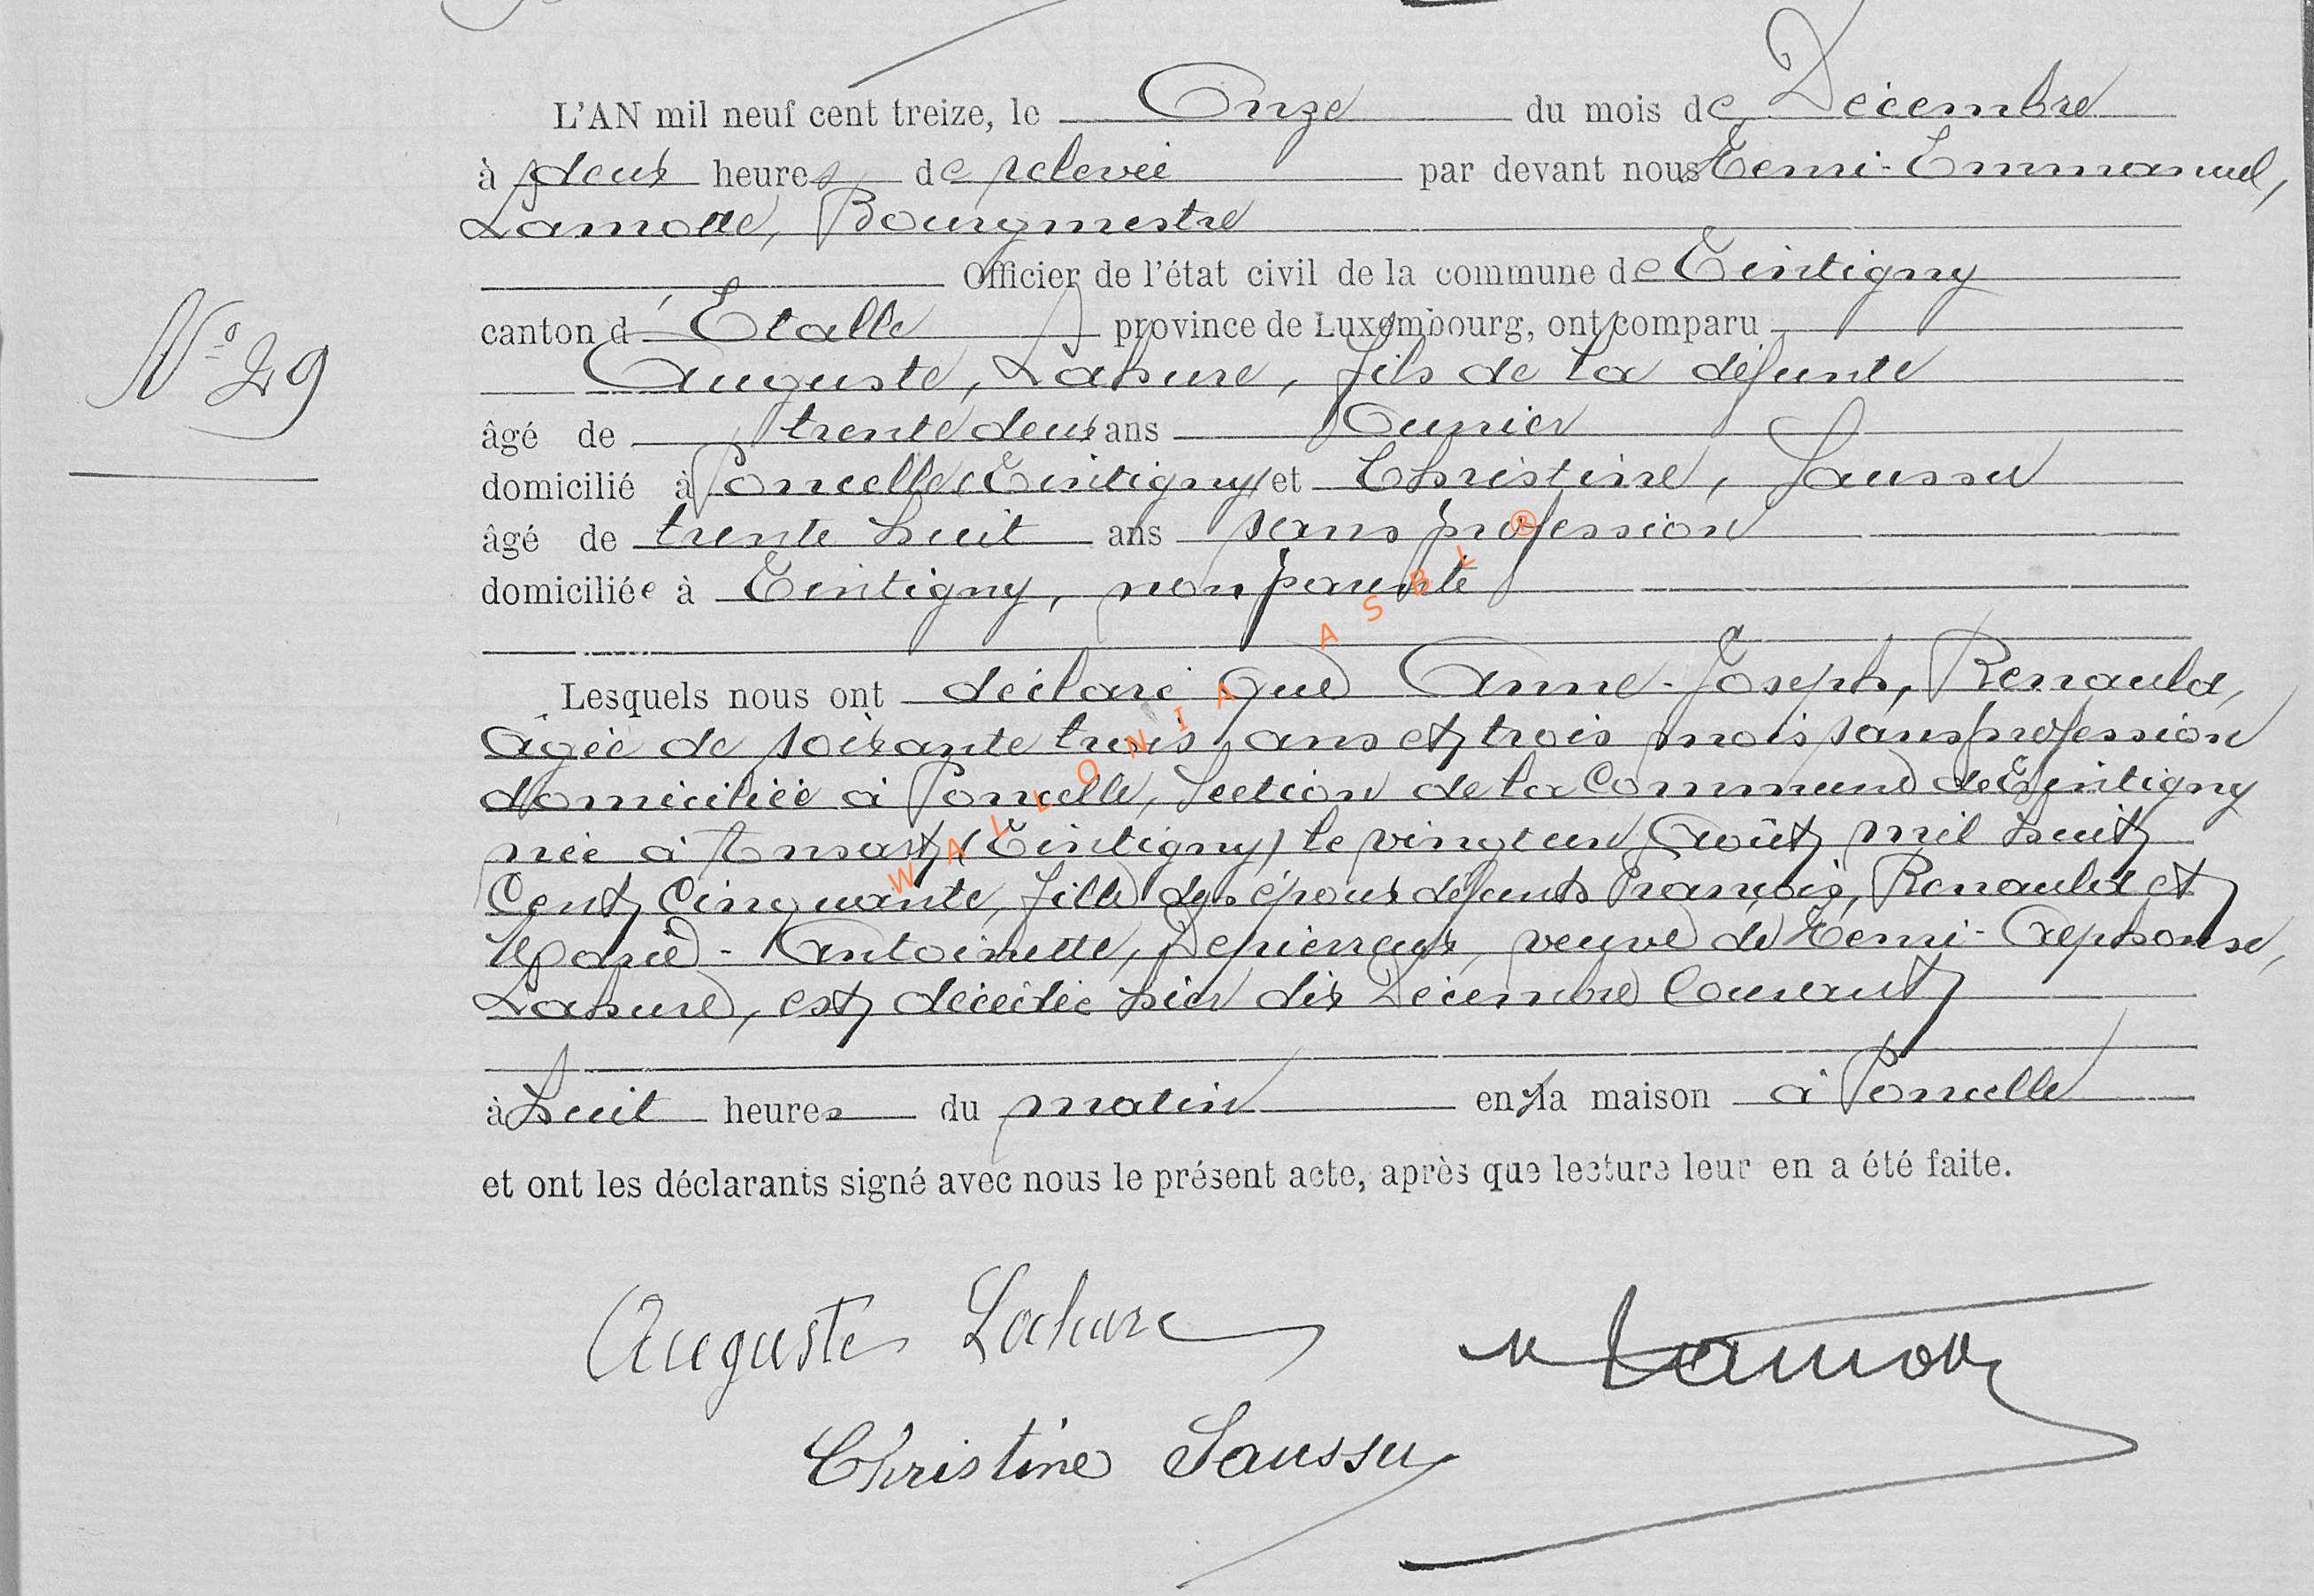 L'AN mil neuf cent treize, le Onze du mois de Décembre
à deux heures de relevée par devant nous Henri-Emmanuel,
Lamotte, Bourgmestre
Officier de l'état civil de la commune de Tintigny
canton d'Etalle province de Luxembourg, ont comparu
Auguste, Lahure, fils de la défunte
N° 29
âgé de trente deux ans Ouvrier
domicilié à Poncelle (Tintigny) et Christine, Saussu
âgé de trente huit ans sans profession
domiciliée à Tintigny, non parente
Lesquels nous ont déclaré que Anne-Joseph, Renauld,
âgée de soixante trois ans et trois mois sans profession
domiciliée à Poncelle, Section de la Commune de Tintigny
née à Ansart (Tintigny) le vingt un Août mil huit
Cent Cinquante, fille des époux défunts François, Renauld et
Marie-Antoinette, Depierreux, veuve de Henri-Alphonse,
Lahure, est décédée hier dix Décembre Courant
à huit heures du matin en la maison à Poncelle
et ont les déclarants signé avec nous le présent acte, après que lecture leur en a été faite.
Auguste Lahure
Lamotte
Christine Saussu
WALLONIA ASBL ®